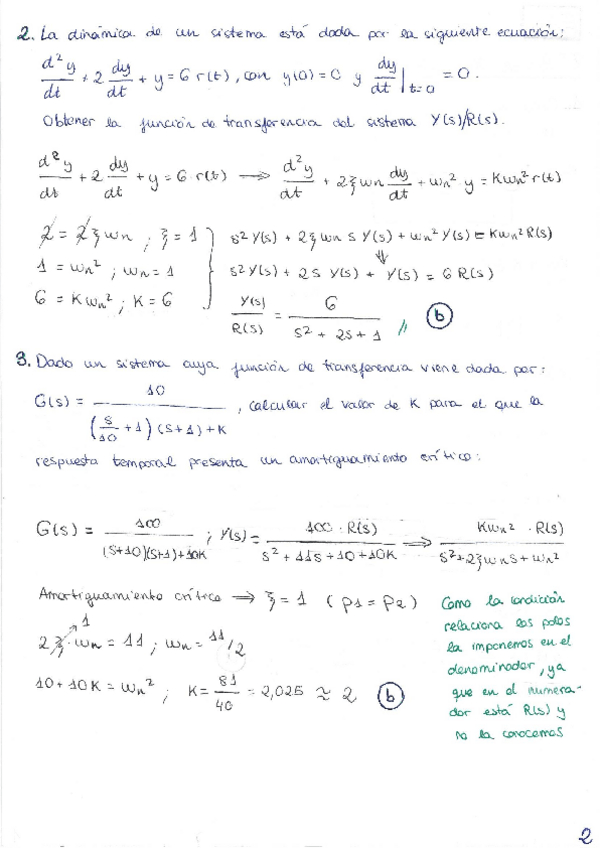 2. La dinámica de un sistema está dada por la siguiente ecuación:
d²y/dt + 2 dy/dt + y = 6 r(t), con y(0) = 0 y dy/dt |t=0 = 0.
Obtener la función de transferencia del sistema Y(s)/R(s).
d²y/dt + 2 dy/dt + y = 6 r(t) ⟹ d²y/dt + 2ξwn dy/dt + wn² y = Kwn² r(t)
2 = 2ξwn ; ξ = 1 } s² Y(s) + 2ξwn s Y(s) + wn² Y(s) = Kwn² R(s)
⇓
1 = wn² ; wn = 1 s² Y(s) + 2s Y(s) + Y(s) = 6 R(s)
6 = Kwn² ; K = 6 Y(s)/R(s) = 6/(s² + 2s + 1) // (b)
3. Dado un sistema cuya función de transferencia viene dada por:
G(s) = 10/((s/10 + 1)(s+1) + K , calcular el valor de K para el que la
respuesta temporal presenta un amortiguamiento crítico:
G(s) = 100/((s+10)(s+1)+10K ; Y(s) = 100 · R(s)/(s² + 11s + 10 + 10K) ⟹ Kwn² · R(s)/(s² + 2ξwns + wn²)
Amortiguamiento crítico ⟹ ξ = 1 (p1 = p2)
1
2ξ · wn = 11 ; wn = 11/2
10 + 10K = wn² ; K = 81/40 = 2,025 ≈ 2 (b)
Como la condición
relaciona los polos
la imponemos en el
denominador, ya
que en el numera-
dor está R(s) y
no la conocemos
2